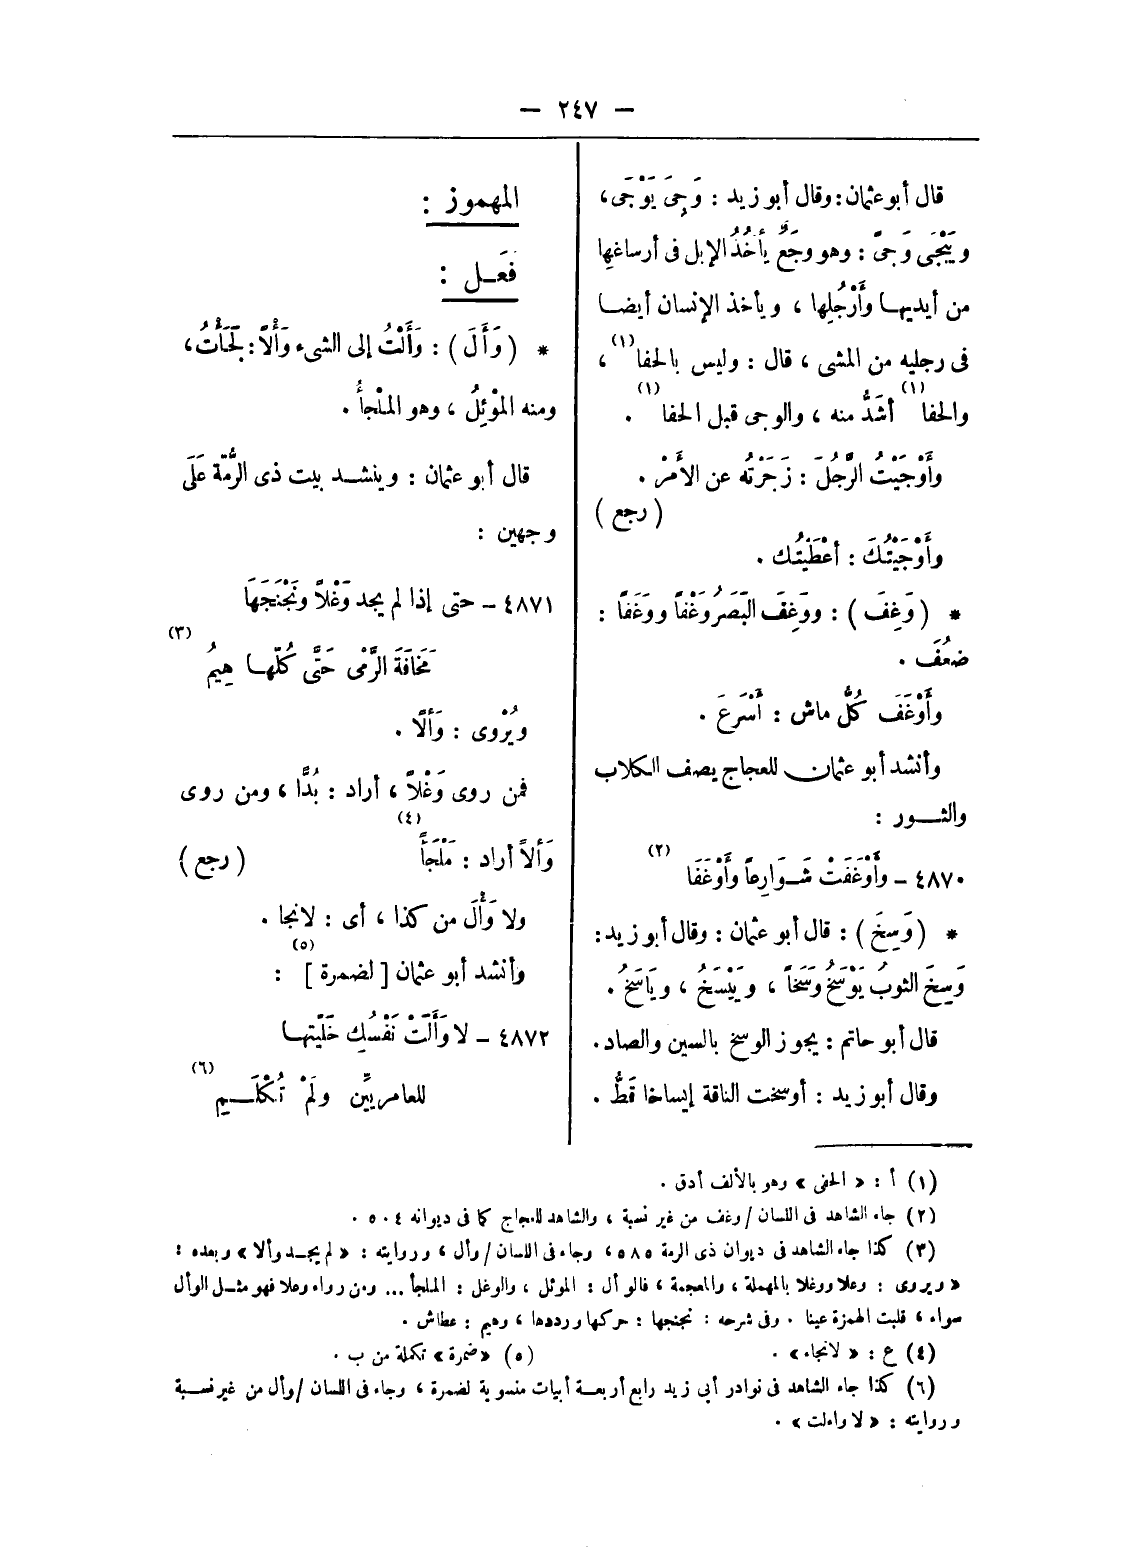 — ٢٤٧ —
قال أبو عثمان : وقال أبو زيد : وَجِىَ يَوْجَى ،
ويَيْجَى وَجىً : وهو وجَعٌ يأخُذُ الإبل فى أرساغها
من أيديهـا وأَرْجُلِها ، ويأخذ الإنسان أيضـا
فى رجليه من المشى ، قال : وليس بالحفا (١) ،
والحفا (١) أشَدُّ منه ، والوجى قبل الحفا (١) .
وأَوْجَيْتُ الرَّجُلَ : زَجَرْتُه عن الأَمْرِ .
( رجع )
وأَوْجَيْتُكَ : أعْطَيْتُك .
* ( وَغِفَ ) : ووَغِفَ البَصَرُ وَغْفًا ووَغَفًا :
ضعُفَ .
وأَوْغَفَ كُلُّ ماش : أَسْرَعَ .
وأنشد أبو عثمان للعجاج يصف الكلاب
والثـــور :
٤٨٧٠ – وأَوْغَفَتْ شَـوَارِعاً وأَوْغَفَا (٢)
* ( وَسِخَ ) : قال أبو عثمان : وقال أبو زيد :
وَسِخَ الثوبُ يَوْسَخُ وَسَخاً ، ويَيْسَخُ ، ويَاسَخُ .
قال أبو حاتم : يجوز الوسخ بالسين والصاد.
وقال أبو زيد : أوسخت الناقة إيساخا قَطُّ .
المهموز :
فَعَـل :
* ( وَأَلَ ) : وَأَلْتُ إلى الشىء وَأْلاً : لَجَأْتُ ،
ومنه المْوْئِلُ ، وهو الملْجأُ .
قال أبو عثمان : وينشـد بيت ذى الرُّمّة عَلَى
وجهين :
٤٨٧١ – حتى إذا لم يجد وَغْلاً ونَجْنَجَهَا
مَخَافَةَ الرَّمْى حَتَّى كُلّهـا هِيمُ (٣)
ويُرْوى : وَأْلاً .
فمن روى وَغْلاً ، أراد : بُدًّا ، ومن روى
وَأْلاً أراد : مَلْجَأً (٤) ( رجع )
ولا وَأَلَ من كذا ، أى : لانجا .
وأنشد أبو عثمان [ لضمرة ] (٥) :
٤٨٧٢ – لا وَأَلَتْ نَفْسُكِ خَلَّيْتِهـا
للعامرِيَّيْن ولَمْ تُكْلَـــمِ (٦)
(١) أ : « الحفى » وهو بالألف أدق .
(٢) جاء الشاهد فى اللسان / وغف من غير نسبة ، والشاهد للعجاج كما فى ديوانه ٥٠٤ .
(٣) كذا جاء الشاهد فى ديوان ذى الرمة ٥٨٥ ، وجاء فى اللسان / وأل ، وروايته : « لم يجـد وألا » وبعده :
« ويروى : وعلا ووغلا بالمهملة ، والمعجمة ، فالوأل : الموئل ، والوغل : الملجأ ... ومن رواه وعلا فهو مثـل الوأل
سواء ، قلبت الهمزة عينا . وفى شرحه : نجنجها : حركها ورددها ، وهيم : عطاش .
(٤) ع : « لانجاء » . (٥) « ضمرة » تكملة من ب .
(٦) كذا جاء الشاهد فى نوادر أبي زيد رابع أربعـة أبيات منسوبة لضمرة ، وجاء فى اللسان / وأل من غير نسـبة
وروايته : « لا واءلت » .